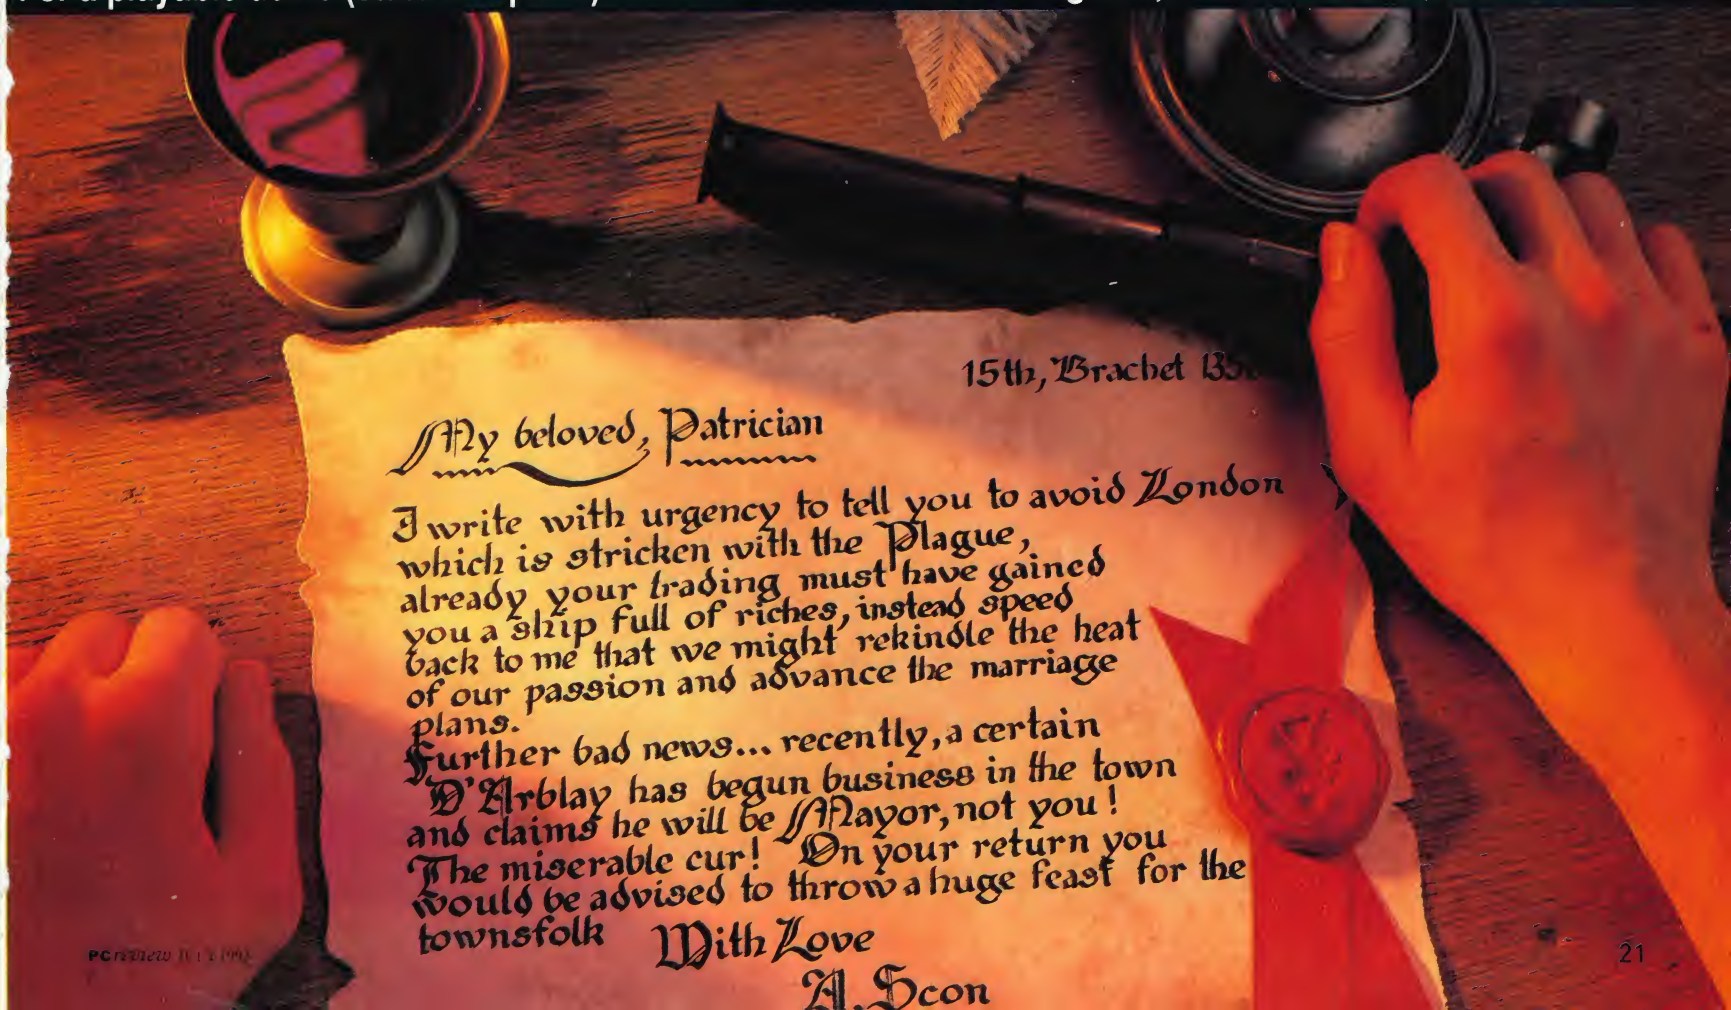 15th, Brachet
My beloved, Patrician
I write with urgency to tell you to avoid London
which is stricken with the Plague,
already your trading must have gained
you a ship full of riches, instead speed
back to me that we might rekindle the heat
of our passion and advance the marriage
plans.
Further bad news... recently, a certain
D'Arblay has begun business in the town
and claims he will be Mayor, not you!
The miserable cur! On your return you
would be advised to throw a huge feast for the
townsfolk
With Love
A. Scon
PC review
21